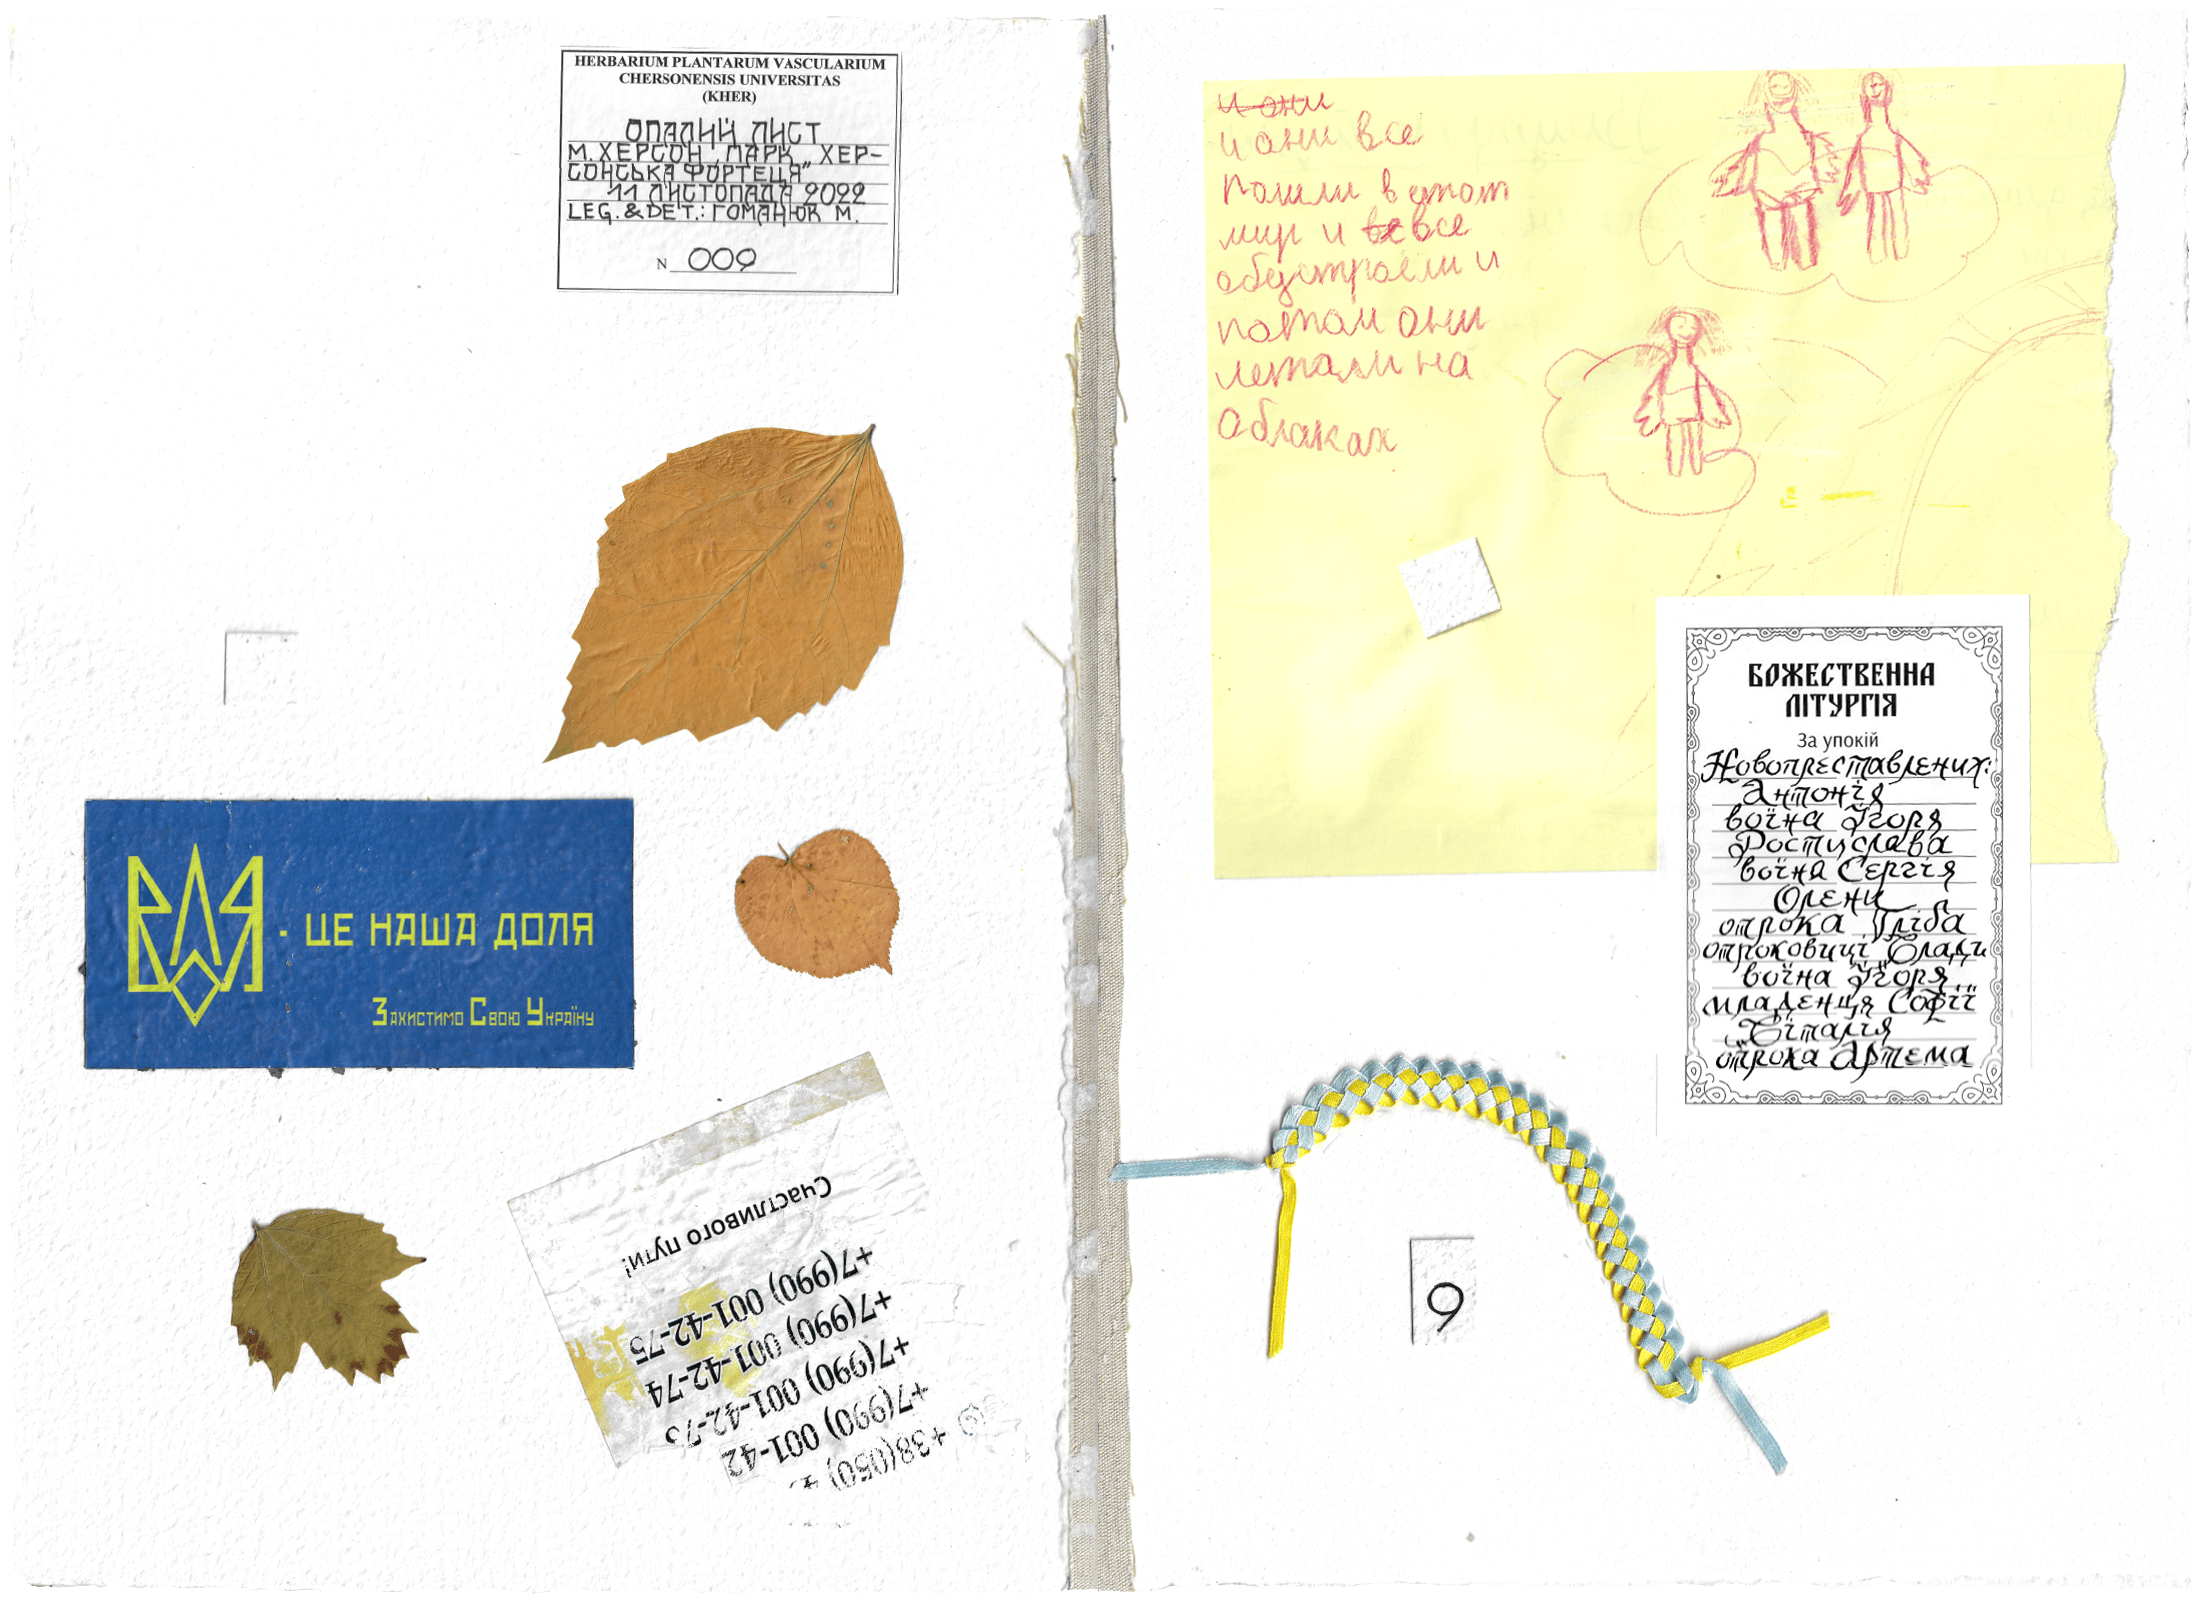 HERBARIUM PLANTARUM VASCULARIUM
CHERSONENSIS UNIVERSITAS
(KHER)
ОПАЛИЙ ЛИСТ
М. ХЕРСОН, ПАРК „ХЕР-
СОНСЬКА ФОРТЕЦЯ"
11 ЛИСТОПАДА 2022
LEG. & DET.: ГОМАНЮК М.
N 009
ВОЛЯ - ЦЕ НАША ДОЛЯ
Захистимо Свою Україну
Счастливого пути!
+7(990) 001-42-75
+7(990) 001-42-74
+7(990) 001-42-73
+7(990) 001-42
+38(050)
и они
и они все
пошли в этот
мир и все все
обустроели и
потом они
летали на
облаках
БОЖЕСТВЕННА
ЛІТУРГІЯ
За упокій
Новопреставлених:
Антонія
воїна Ігоря
Ростислава
воїна Сергія
Олени
отрока Гліба
отроковиці Влади
воїна Ігоря
младенця Софії
Віталія
отрока Артема
9